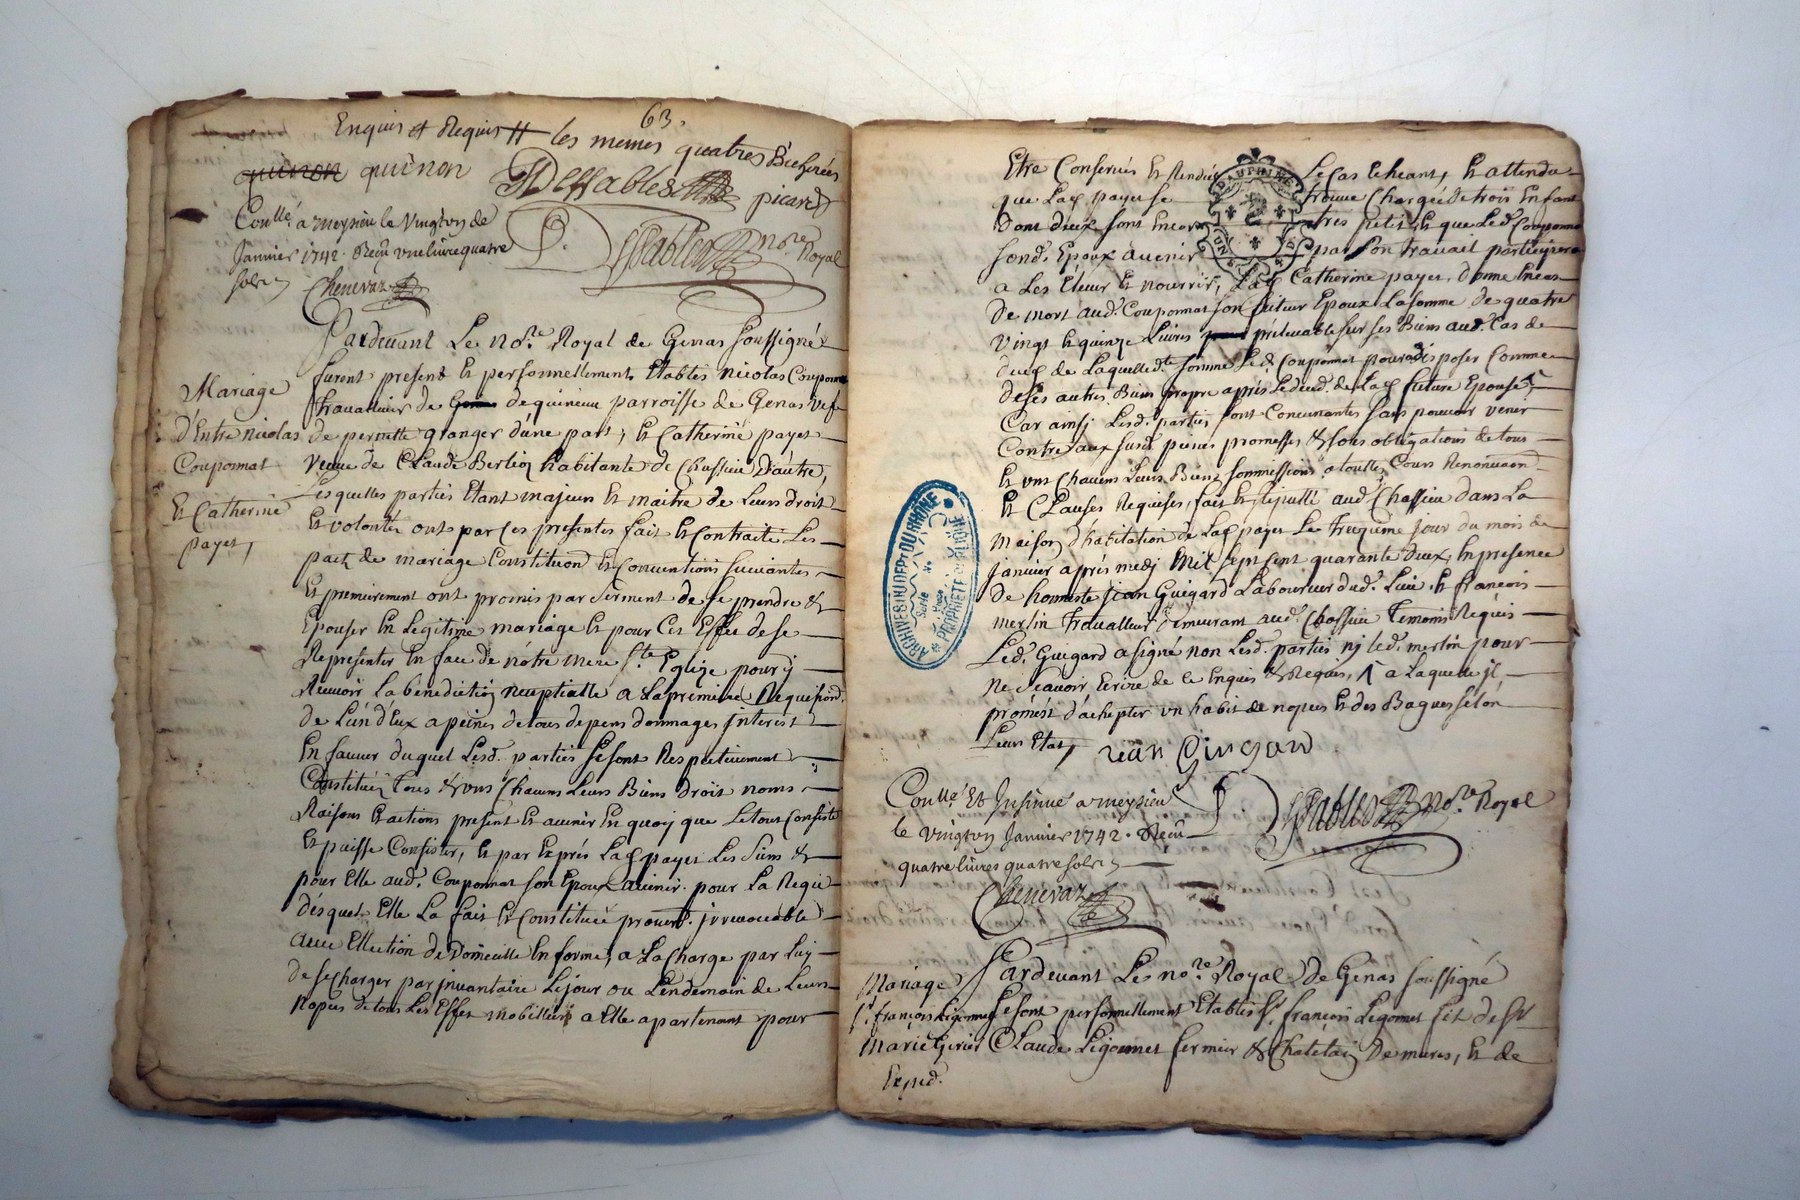 63.
Enquis et Requis les memes quatres
quinon quinon
Deffables picard
Conllé a meysieu le Vingt un de
Janvier 1742. Reçu une livre quatre
sols
Chenevaz
P. Desfables no.re Royal
Pardevant Le No.re Royal de Genas soussigné
furent present et personnellement Etablis nicolas Couponnat
Mariage
d'Entre nicolas
Couponnat
Et Catherine
payet,
travailleur de dequineux parroisse de Genas vef
de pernette granger d'une part, et Catherine payet
veuve de Claude Berlioz habitante de Chassieu d'autre,
Lesquelles parties Etant majeurs et maitre de Leurs droit
et volontés ont par ces presentes fait et Contraité Les
pact de mariage Constitution et Conventions suivantes
Et premierement ont promis par serment de se prendre &
Epouser En legitime mariage et pour Cet Effet de se
Representer En face de nôtre mere S.te Eglize pour y
Recevoir La benediction neuptialle a La premiere Requisition
de L'un d'Eux a peines de tous depens dommages interest
En faveur duquel Lesd. parties se sont Respectivement
Constitués Tous & uns Chacuns Leurs Biens droit noms
Raisons et actions present et avenir En quoy que Le tout Consiste
Et puisse Consister, et par Exprés Lad payet Les siens &
pour Elle aud. Couponnat son Epoux avenir pour La Regie
desquels Elle La fait et Constitué procur. irrevocable
avec Ellection de Domicille En forme, a La Charge par Luy
de se Charger par inventaire Le jour ou Lendemain de Leurs
Nopces de tous Les Effet mobilliers a Elle apartenant pour
Etre Conservés et Rendus Le Cas Echeant, Et attendu
que Lad payet se trouve Chargée de trois Enfant
Dont deux sont Encor tres petit et que Led. Couponnat
sond. Epoux avenir par son travail participera
DAUPHINÉ
a Les Elever et nourrir, Lad Catherine payet donne En cas
de mort aud. Couponnat son futeur Epoux La somme de quatre
vingt et quinze Livres prelevable sur ses Biens aud. Cas de
de Laquelle d.te somme Led. Couponnat pourra disposer Comme
de ses autres Biens propre aprés Le deced. de Lad future Epouse,
Car ainsj Lesd. parties sont Convenantes sans pouvoir venir
Contre aux susd peines promesses & sous obligations de tous
Et uns Chacuns Leurs Biens sommissions a touttes Cours Renonciaon
Et Clauses Requises, fait et stipullé aud. Chassieu dans La
maison d'habitation de Lad payet Le Treizieme jour du mois de
janvier aprés medj mil sept cent quarante deux, En presence
de honneste jean Guigard Laboureur dud. Lieu, et francois
merlin Travailleur demeurant aud. Chassieu Temoins Requis
Led. Guigard a signé non Lesd. parties nj led. merlin pour
ne sçavoir Ecrire de ce Enquis & Requis, a Laquelle jl
promêt d'achepter un habit de nopces et des Bagues selon
Leurs Etat,
Jean Gingard
ARCHIVES DU DEPT DU RHONE
Serie No
PROPRIETE PUBLIQUE
Conllé Et Insinué a meysieu
le vingt un Janvier 1742. Reçu
quatre livres quatre sols
Chenevaz
P. Desfables no.re Royal
Mariage
S.r françois Ligonnet
Marie Girier
Exped.
Pardevant Les no.re Royal de Genas soussigné
se sont personnellement Etablis S.r françois Ligonnet fils de S.r
Claude Ligonnet fermier & Chatelain de mures, et de